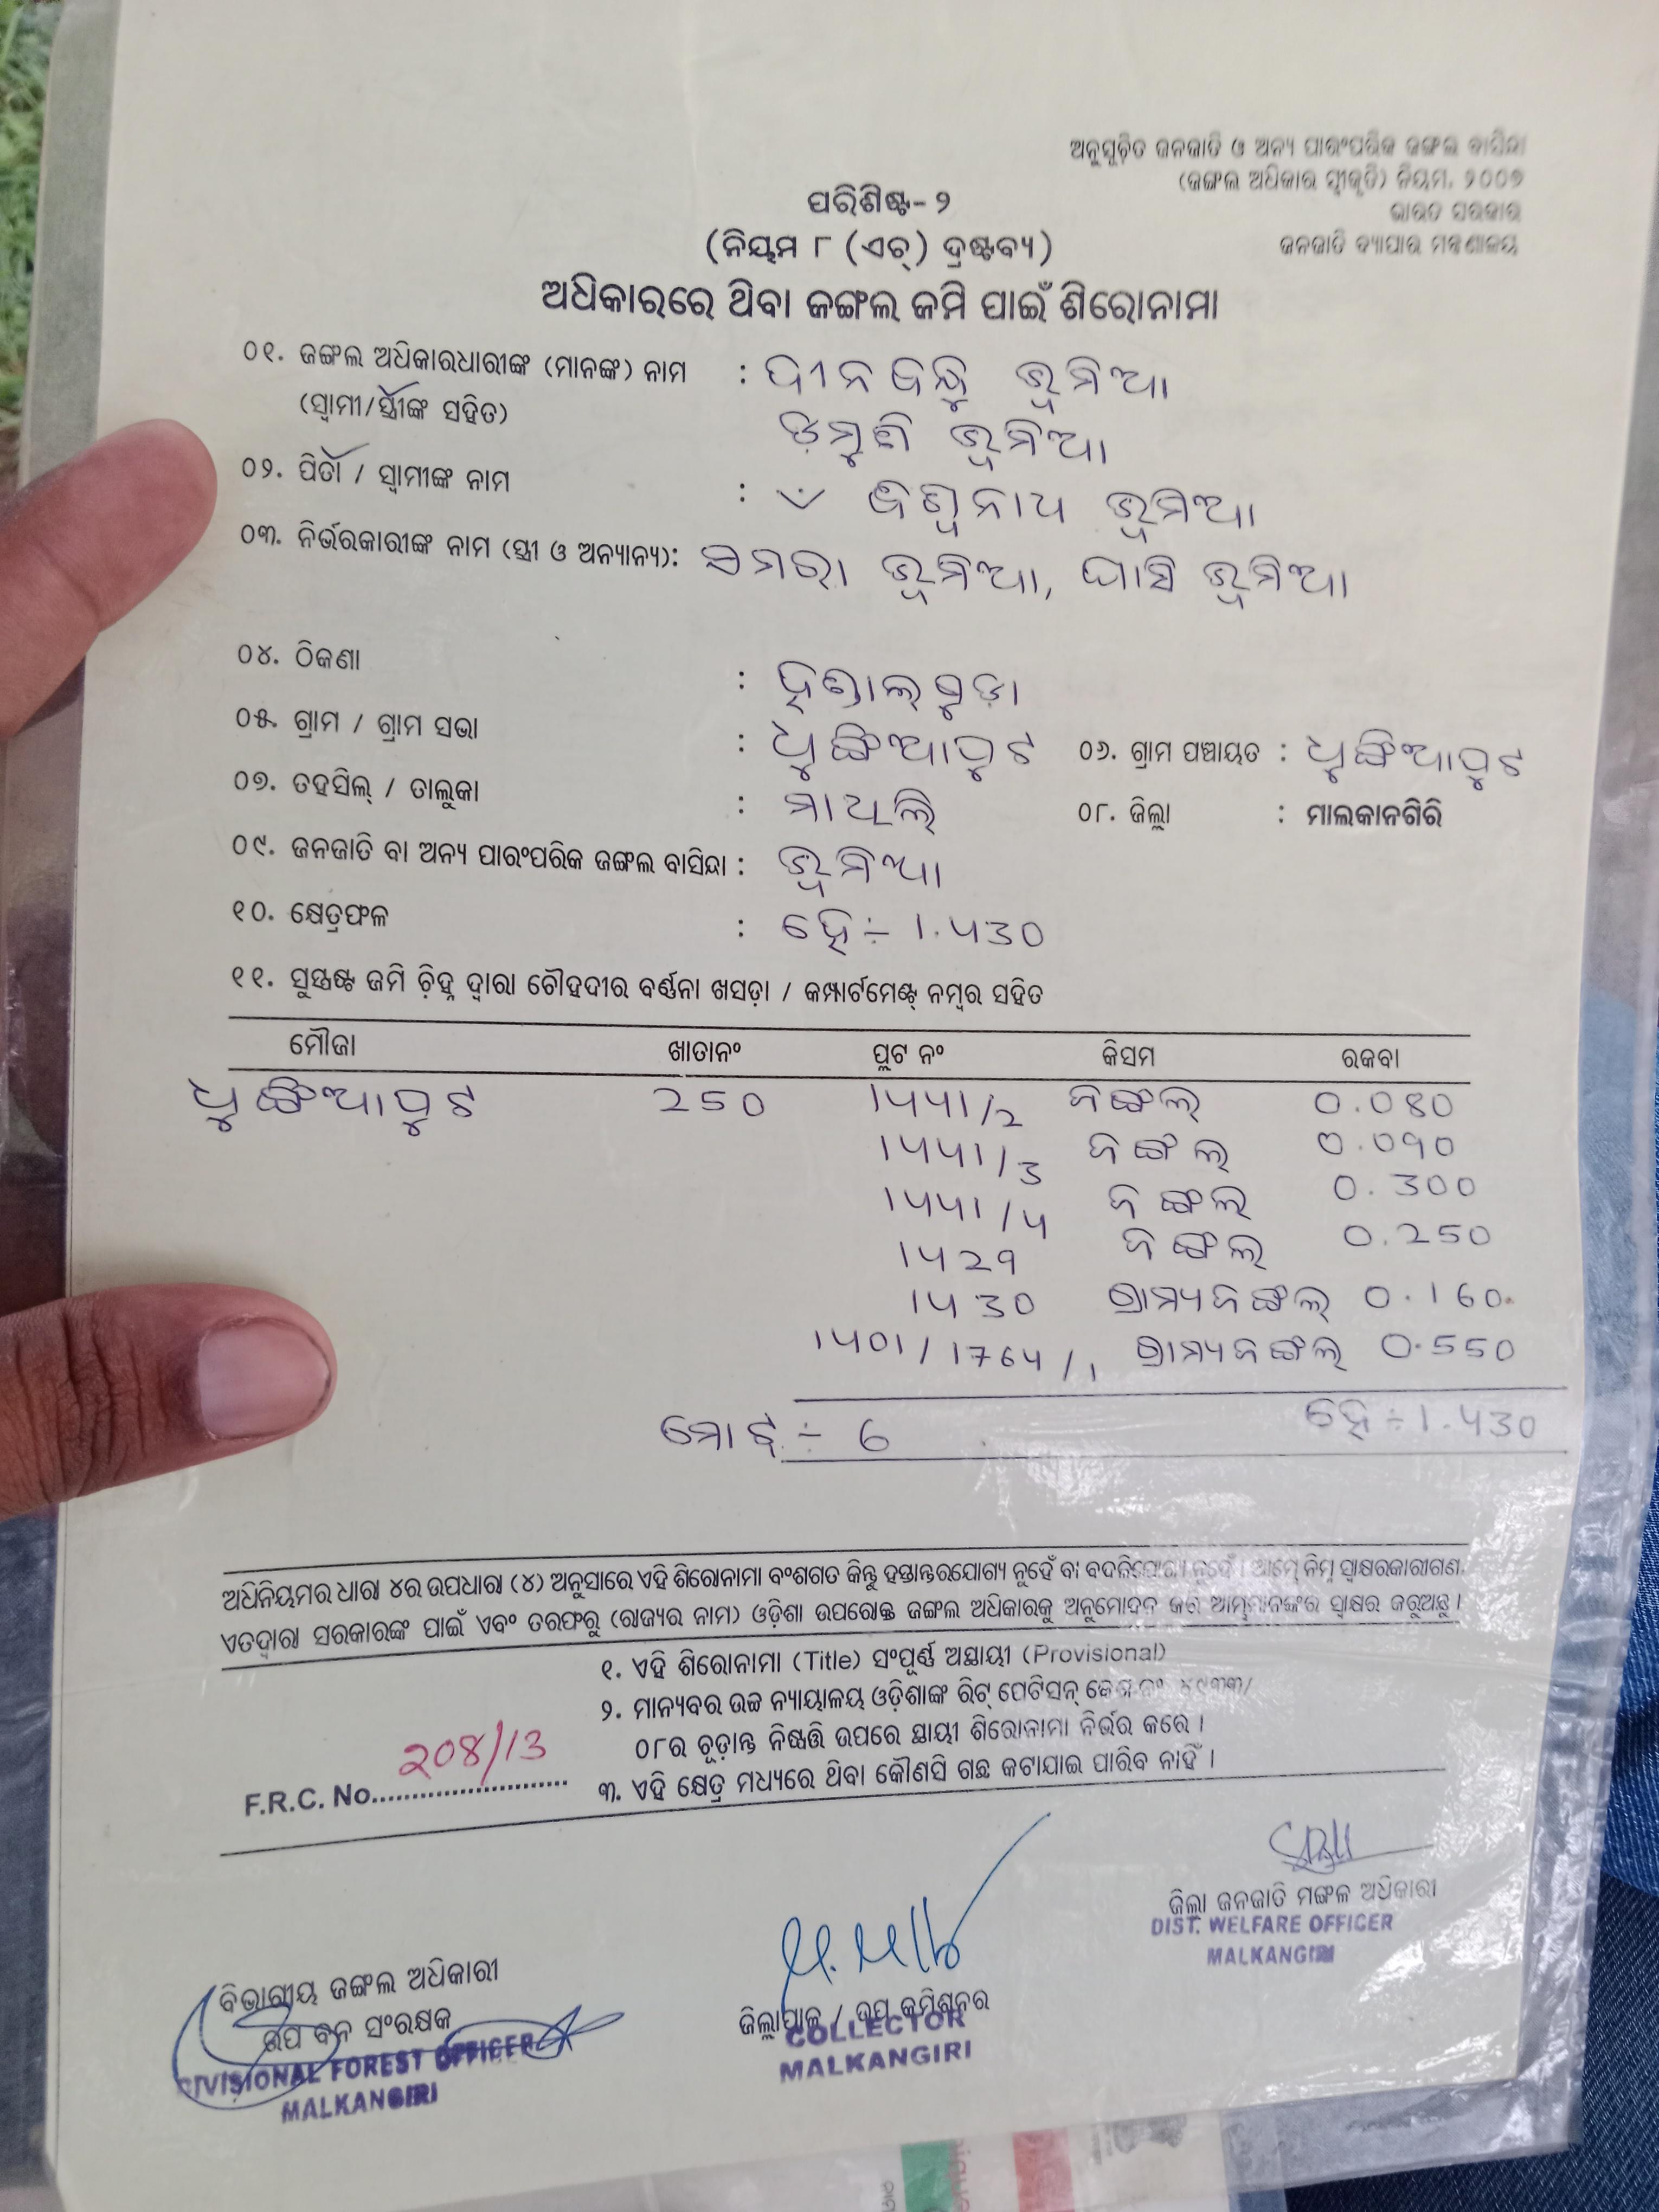 ଅନୁସୂଚିତ ଜନଜାତି ଓ ଅନ୍ୟ ପାରଂପରିକ ଜଙ୍ଗଲ ବାସିନ୍ଦା
(ଜଙ୍ଗଲ ଅଧିକାର ସ୍ୱୀକୃତି) ନିୟମ, ୨୦୦୭
ଭାରତ ସରକାର
ଜନଜାତି ବ୍ୟାପାର ମନ୍ତ୍ରଣାଳୟ
ପରିଶିଷ୍ଟ- ୨
(ନିୟମ ୮ (ଏଚ୍) ଦ୍ରଷ୍ଟବ୍ୟ)
ଅଧିକାରରେ ଥିବା ଜଙ୍ଗଲ ଜମି ପାଇଁ ଶିରୋନାମା
୦୧. ଜଙ୍ଗଲ ଅଧିକାରଧାରୀଙ୍କ (ମାନଙ୍କ) ନାମ : ଦୀନବନ୍ଧୁ ଭୂମିଆ
(ସ୍ୱାମୀ/ସ୍ତ୍ରୀଙ୍କ ସହିତ) ଡମୁଣି ଭୂମିଆ
୦୨. ପିତା / ସ୍ୱାମୀଙ୍କ ନାମ : ବିଶ୍ୱନାଥ ଭୂମିଆ
୦୩. ନିର୍ଭରକାରୀଙ୍କ ନାମ (ସ୍ତ୍ରୀ ଓ ଅନ୍ୟାନ୍ୟ): ଭୂମିଆ, ଘାସି ଭୂମିଆ
୦୪. ଠିକଣା :
୦୫. ଗ୍ରାମ / ଗ୍ରାମ ସଭା : ଧୁଙ୍ଗିଆପୁଟ ୦୬. ଗ୍ରାମ ପଞ୍ଚାୟତ : ଧୁଙ୍ଗିଆପୁଟ
୦୭. ତହସିଲ୍ / ତାଲୁକା : ମାଥିଲି ୦୮. ଜିଲ୍ଲା : ମାଲକାନଗିରି
୦୯. ଜନଜାତି ବା ଅନ୍ୟ ପାରଂପରିକ ଜଙ୍ଗଲ ବାସିନ୍ଦା : ଭୂମିଆ
୧୦. କ୍ଷେତ୍ରଫଳ : ହେ÷ 1.430
୧୧. ସୁସ୍ପଷ୍ଟ ଜମି ଚିହ୍ନ ଦ୍ୱାରା ଚୌହଦୀର ବର୍ଣ୍ଣନା ଖସଡ଼ା / କମ୍ପାର୍ଟମେଣ୍ଟ୍ ନମ୍ବର ସହିତ
ମୌଜା ଖାତାନଂ ପ୍ଲଟ ନଂ କିସମ ରକବା
ଧୁଙ୍ଗିଆପୁଟ 250 1441/2 ଜଙ୍ଗଲ 0.080
1441/3 ଜଙ୍ଗଲ 0.090
1441/4 ଜଙ୍ଗଲ 0.300
1429 ଜଙ୍ଗଲ 0.250
1430 ଗ୍ରାମ୍ୟଜଙ୍ଗଲ 0.160
1401/1764/1 ଗ୍ରାମ୍ୟଜଙ୍ଗଲ 0.550
ମୋଟ ÷ 6 ହେ ÷ 1.430
ଅଧିନିୟମର ଧାରା ୪ର ଉପଧାରା (୪) ଅନୁସାରେ ଏହି ଶିରୋନାମା ବଂଶଗତ କିନ୍ତୁ ହସ୍ତାନ୍ତରଯୋଗ୍ୟ ନୁହେଁ ବା ବଦଳିଯୋଗ୍ୟ ନୁହେଁ । ଆମ୍ଭେ ନିମ୍ନ ସ୍ୱାକ୍ଷରକାରୀଗଣ,
ଏତଦ୍ୱାରା ସରକାରଙ୍କ ପାଇଁ ଏବଂ ତରଫରୁ (ରାଜ୍ୟର ନାମ) ଓଡ଼ିଶା ଉପରୋକ୍ତ ଜଙ୍ଗଲ ଅଧିକାରକୁ ଅନୁମୋଦନ କରି ଆମ୍ଭମାନଙ୍କର ସ୍ୱାକ୍ଷର କରୁଅଛୁ ।
୧. ଏହି ଶିରୋନାମା (Title) ସଂପୂର୍ଣ୍ଣ ଅସ୍ଥାୟୀ (Provisional)
୨. ମାନ୍ୟବର ଉଚ୍ଚ ନ୍ୟାୟାଳୟ ଓଡ଼ିଶାଙ୍କ ରିଟ୍ ପେଟିସନ୍ କେଶ ନଂ ୪୯୩୩/
୦୮ର ଚୂଡ଼ାନ୍ତ ନିଷ୍ପତ୍ତି ଉପରେ ସ୍ଥାୟୀ ଶିରୋନାମା ନିର୍ଭର କରେ ।
୩. ଏହି କ୍ଷେତ୍ର ମଧ୍ୟରେ ଥିବା କୌଣସି ଗଛ କଟାଯାଇ ପାରିବ ନାହିଁ ।
F.R.C. No. 208/13
ଜିଲ୍ଲା ଜନଜାତି ମଙ୍ଗଳ ଅଧିକାରୀ
DIST. WELFARE OFFICER
MALKANGIRI
ବିଭାଗୀୟ ଜଙ୍ଗଲ ଅଧିକାରୀ
ଉପ ବନ ସଂରକ୍ଷକ
DIVISIONAL FOREST OFFICER
MALKANGIRI
ଜିଲ୍ଲାପାଳ / ଉପ କମିଶନର
COLLECTOR
MALKANGIRI